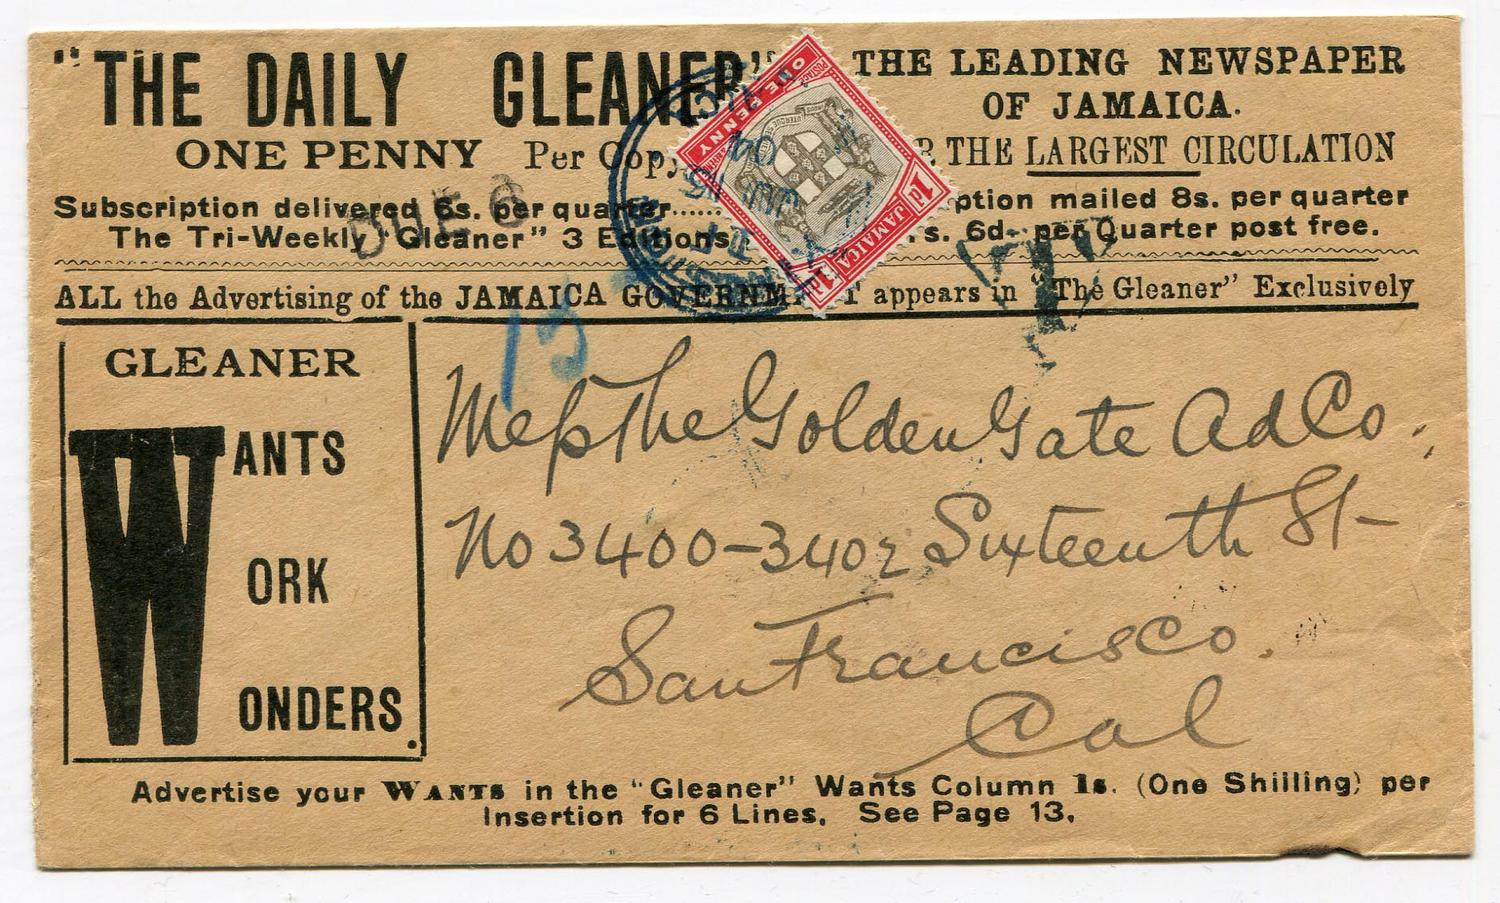 "THE DAILY GLEANER"
THE LEADING NEWSPAPER
OF JAMAICA.
ONE PENNY Per Copy,
THE LARGEST CIRCULATION
Subscription delivered 6s. per quarter......
mailed 8s. per quarter
The Tri-Weekly "Gleaner" 3 Editions
s. 6d. per Quarter post free.
DUE 6
ALL the Advertising of the JAMAICA GOVERNMENT appears in "The Gleaner" Exclusively
ONE PENNY
POSTAGE
1d JAMAICA 1d
JU 15
04
T
15
GLEANER
WANTS
WORK
WONDERS.
Mess The Golden Gate Ad Co.,
No 3400-3402 Sixteenth St-
San Francisco.
Cal
Advertise your WANTS in the "Gleaner" Wants Column 1s. (One Shilling) per
Insertion for 6 Lines. See Page 13.